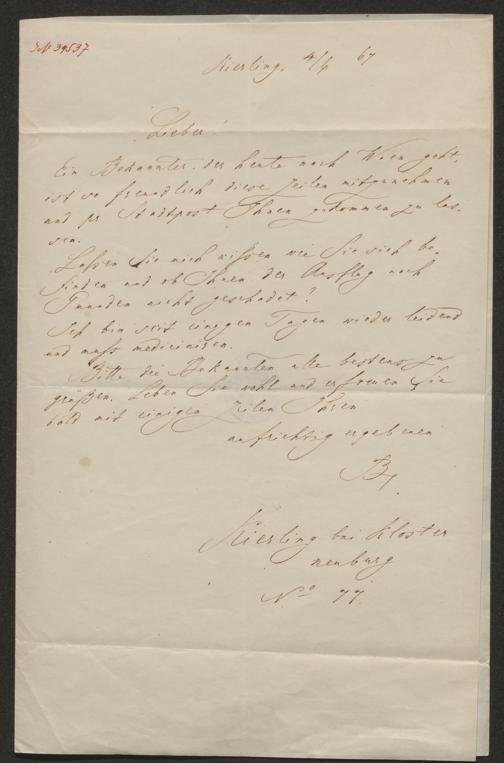 N 39537
Kierling. 4/6 67
Lieber!
Ein Bekannter, der heute nach Wien geht,
ist so freundlich diese Zeilen mitzunehmen
und per Stadtpost Ihnen zukommen zu las-
sen.
Lassen Sie mich wissen wie Sie sich be-
finden und ob Ihnen der Ausflug nach
Gmunden nicht geschadet?
Ich bin seit einigen Tagen wieder leidend
und muß mediciniren.
Bitte die Bekannten alle bestens zu
grüßen. Leben Sie wohl und erfreuen Sie
bald mit einigen Zeilen Ihren
aufrichtig ergebenen
B
Kierling bei Kloster
neuburg
No 77.